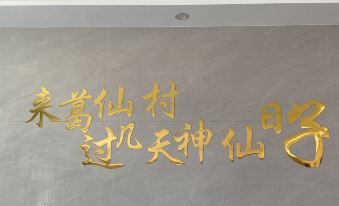 来葛仙村
过几天神仙日子